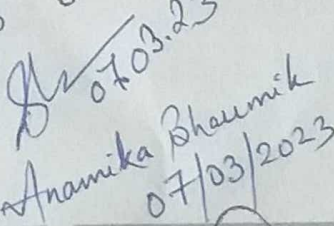 07.03.23
Anamika Bhaumik
07/03/2023